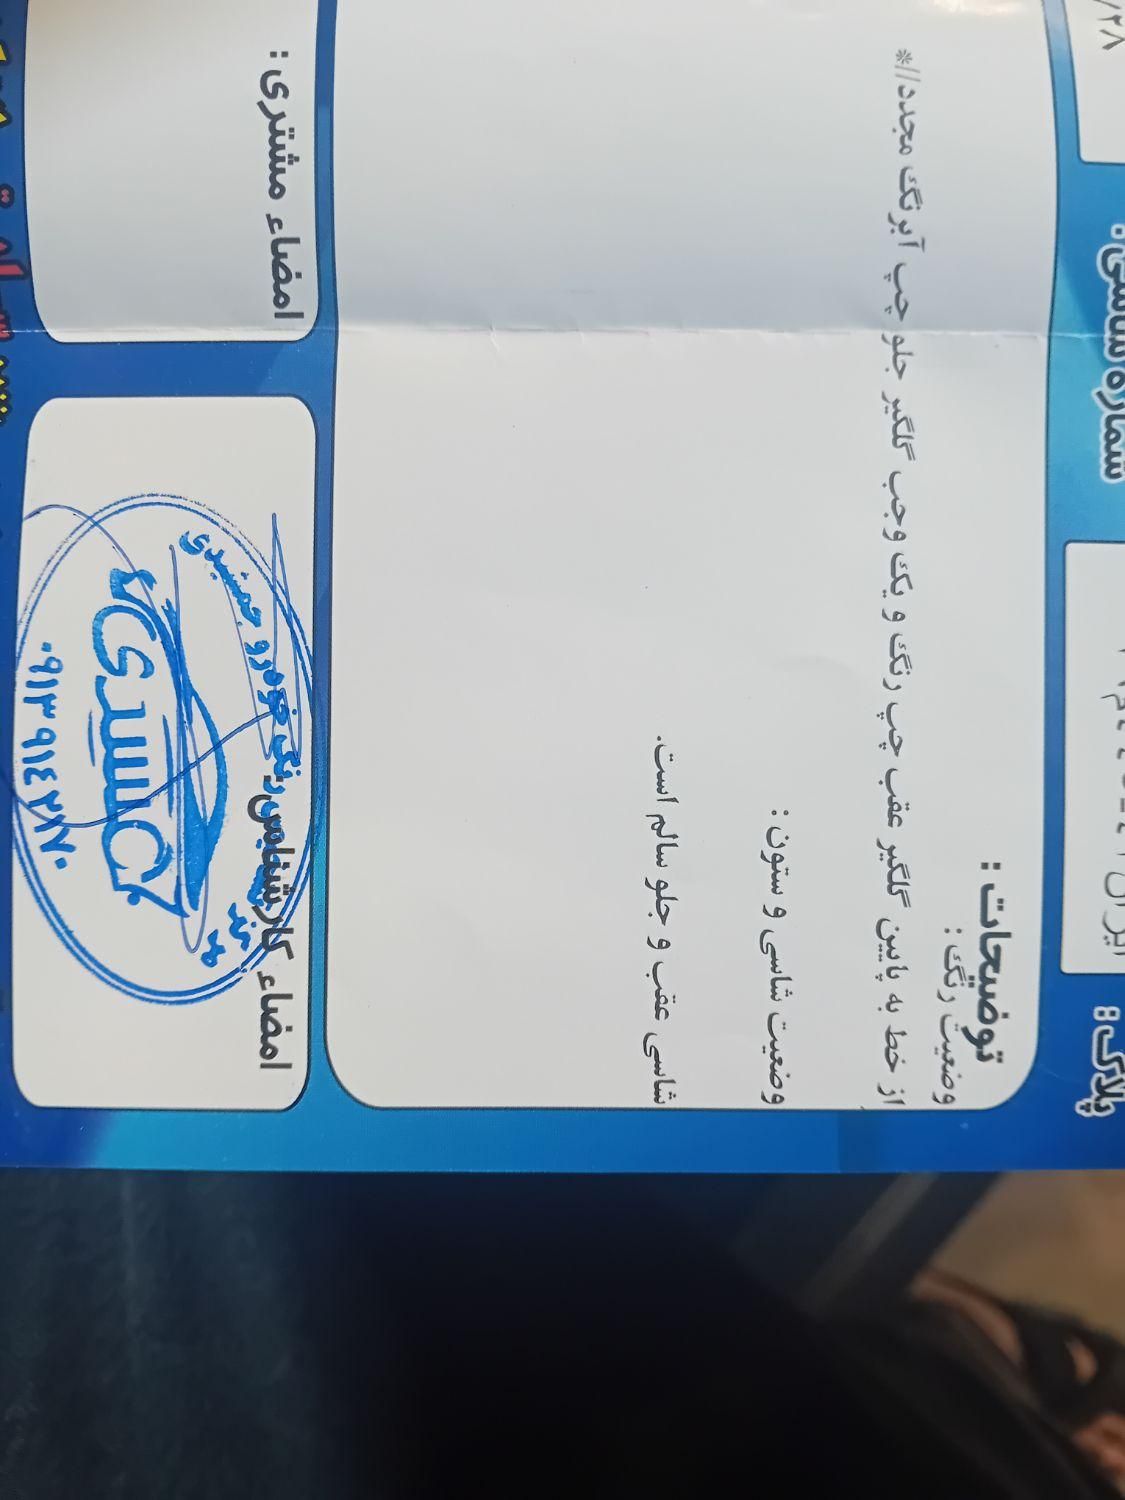 /۲۸
شماره شاسی :
پلاک :
توضیحات :
وضعیت رنگ :
از خط به پایین گلگیر عقب چپ رنگ و یک وجب گلگیر جلو چپ آبرنگ مجدد//*
وضعیت شاسی و ستون :
شاسی عقب و جلو سالم است.
امضاء کارشناس
امضاء مشتری :
رنگ خودرو جمشیدی
۰۹۱۳۹۱۴۲۱۷۰